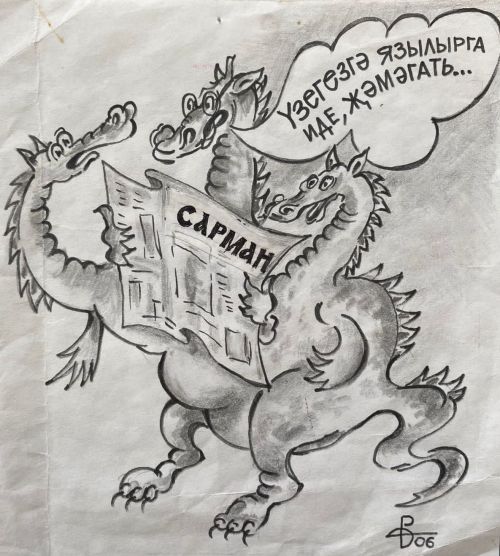 Үзегезгә языЛырга
иде, җәмәгать...
САРМАН
06